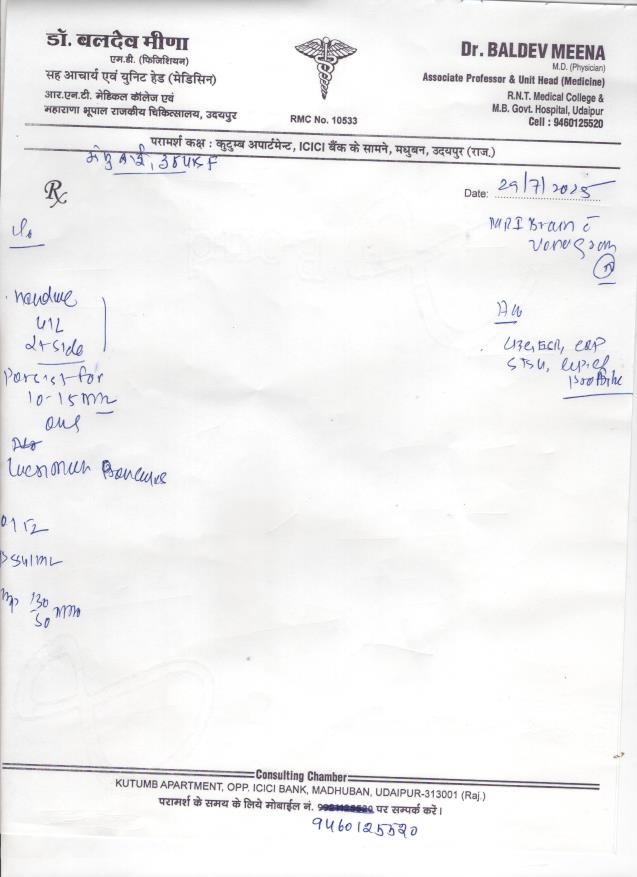 डॉ. बलदेव मीणा
एम.डी. (फिजिशियन)
सह आचार्य एवं यूनिट हेड (मेडिसिन)
आर.एन.टी. मेडिकल कॉलेज एवं
महाराणा भूपाल राजकीय चिकित्सालय, उदयपुर
RMC No. 10533
Dr. BALDEV MEENA
M.D. (Physician)
Associate Professor & Unit Head (Medicine)
R.N.T. Medical College &
M.B. Govt. Hospital, Udaipur
Cell : 9460125520
परामर्श कक्ष : कुटुम्ब अपार्टमेन्ट, ICICI बैंक के सामने, मधुबन, उदयपुर (राज.)
Rx
Date: 29/7/2025
MRI Brain c̄
venogram
c/o
Headache
Adv
U/L
CBC, ESR, CRP
Persist for
10-15 min
130
mm
Consulting Chamber
KUTUMB APARTMENT, OPP. ICICI BANK, MADHUBAN, UDAIPUR-313001 (Raj.)
परामर्श के समय के लिये मोबाईल नं. पर सम्पर्क करें।
9460125520